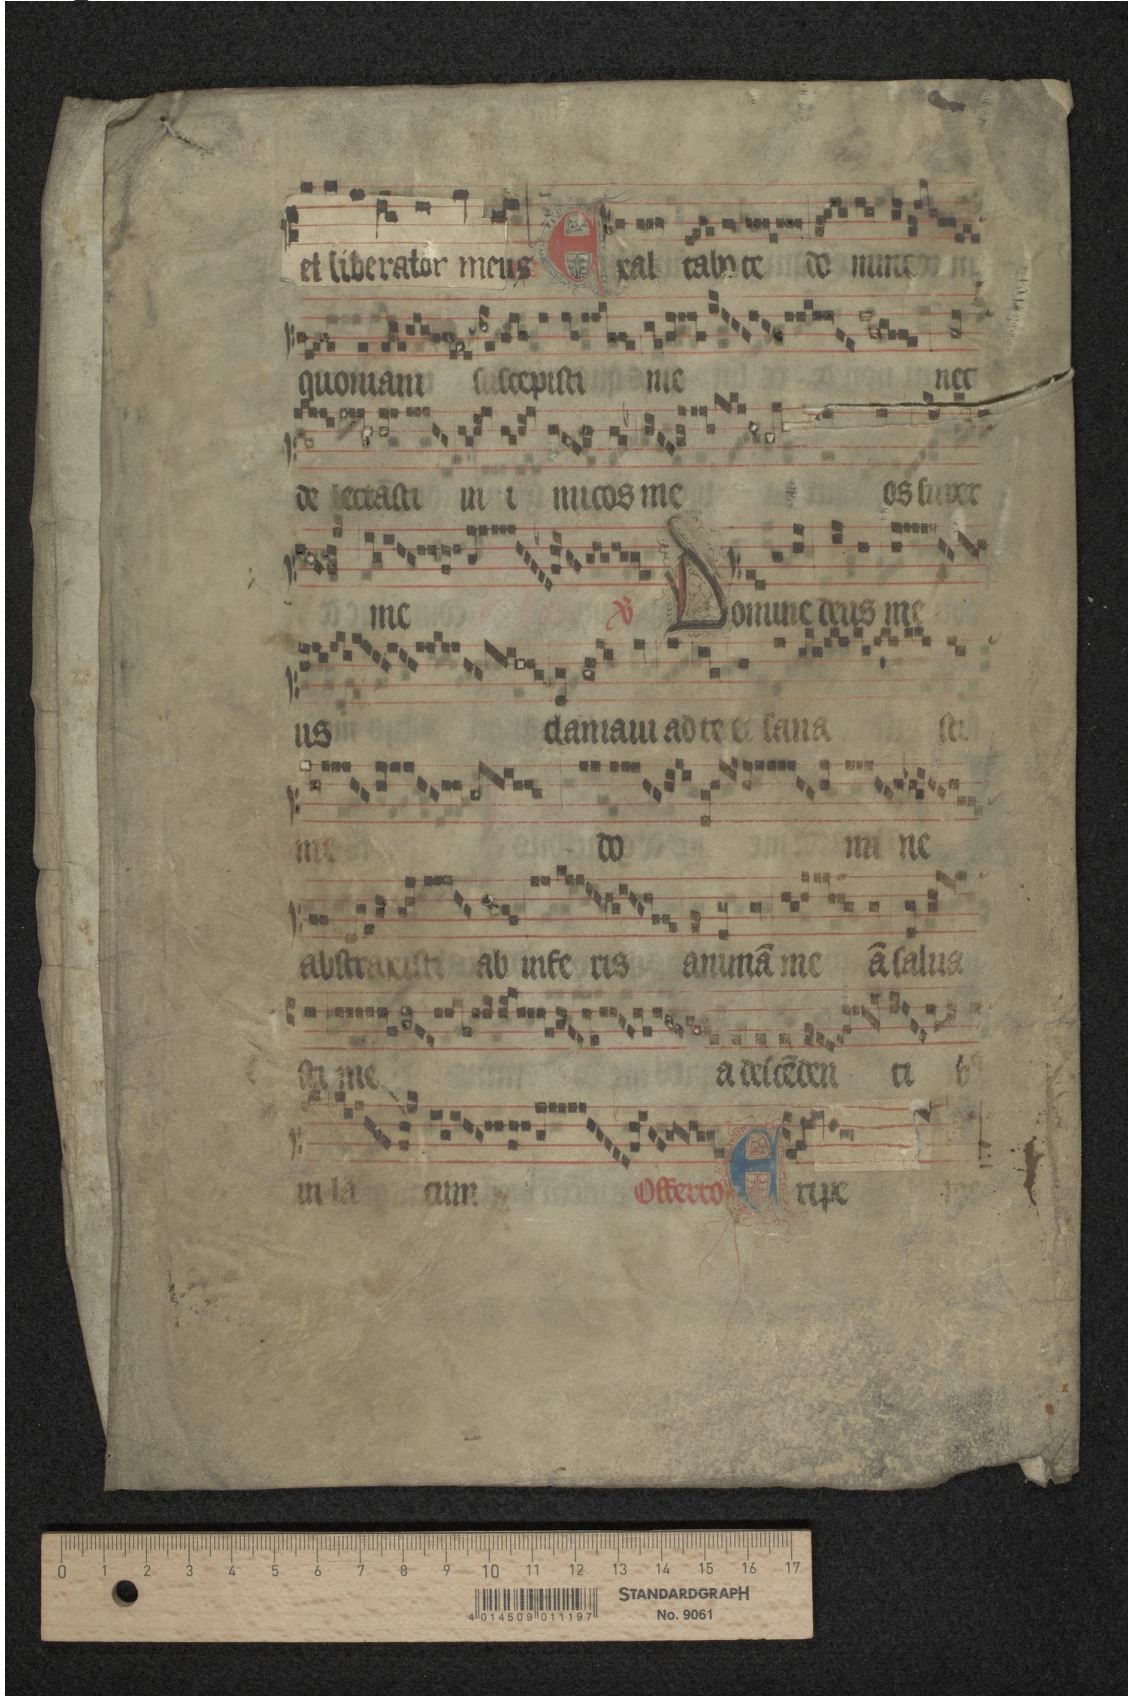 et liberator meus Exal tabo te do mine
quoniam suscepisti me nec
de lectasti in i micos me os super
me ℣ Domine deus me
us clamaui ad te et sana sti
me do mi ne
abstraxisti ab infe ris animā me ā salua
sti me a descēden ti bꝰ
in la cum Offerto Eripe me
0 1 2 3 4 5 6 7 8 9 10 11 12 13 14 15 16 17
STANDARDGRAPH
No. 9061
4 014509 011197